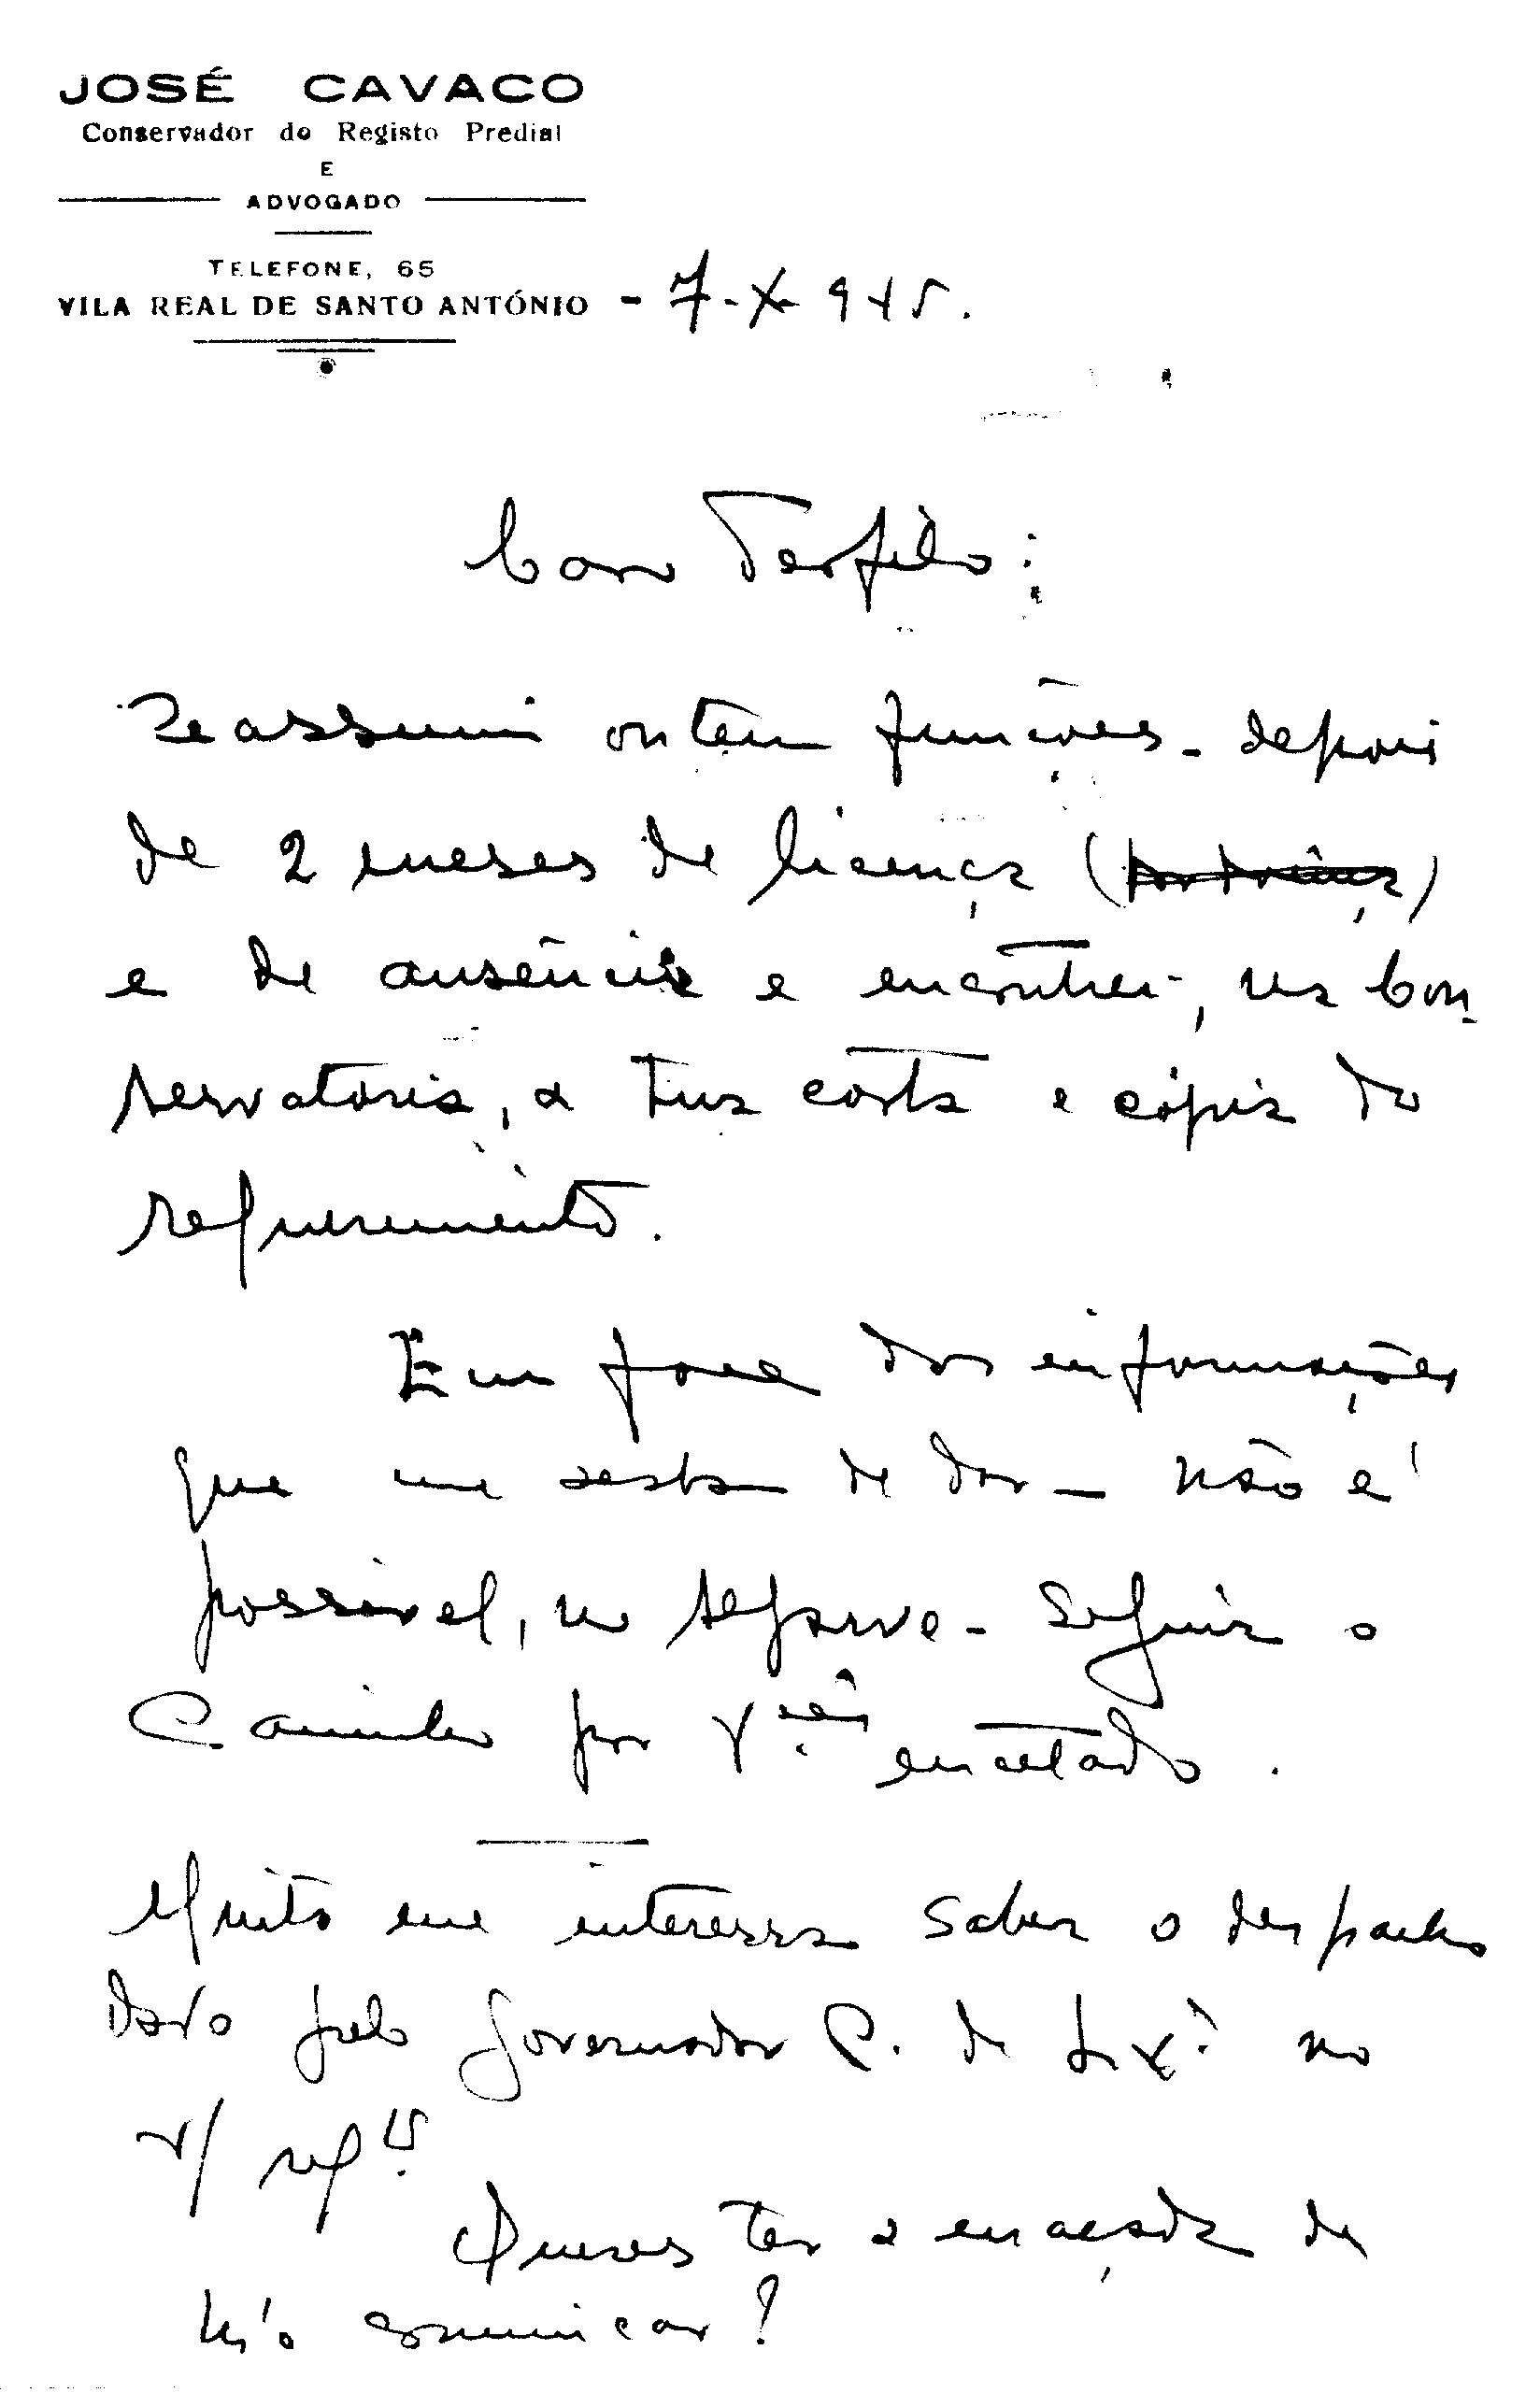 JOSÉ CAVACO
Conservador do Registo Predial
E
ADVOGADO
TELEFONE, 65
VILA REAL DE SANTO ANTÓNIO - 7-X-945.
Caro Teófilo:
Reassumi ontem funções - depois
de 2 meses de licença (por doença)
e de ausência e encontrei, na Con-
servatoria, a tua carta e cópia do
requerimento.
Em face das informações
que me acabam de dar - não é
possível, no Algarve - seguir o
Caminho por V.cês encetado.
Muito me interessa saber o despacho
dado pelo Governador C. de Lxª no
v/ reqto.
Queres ter a maçada de
m'o comunicar?